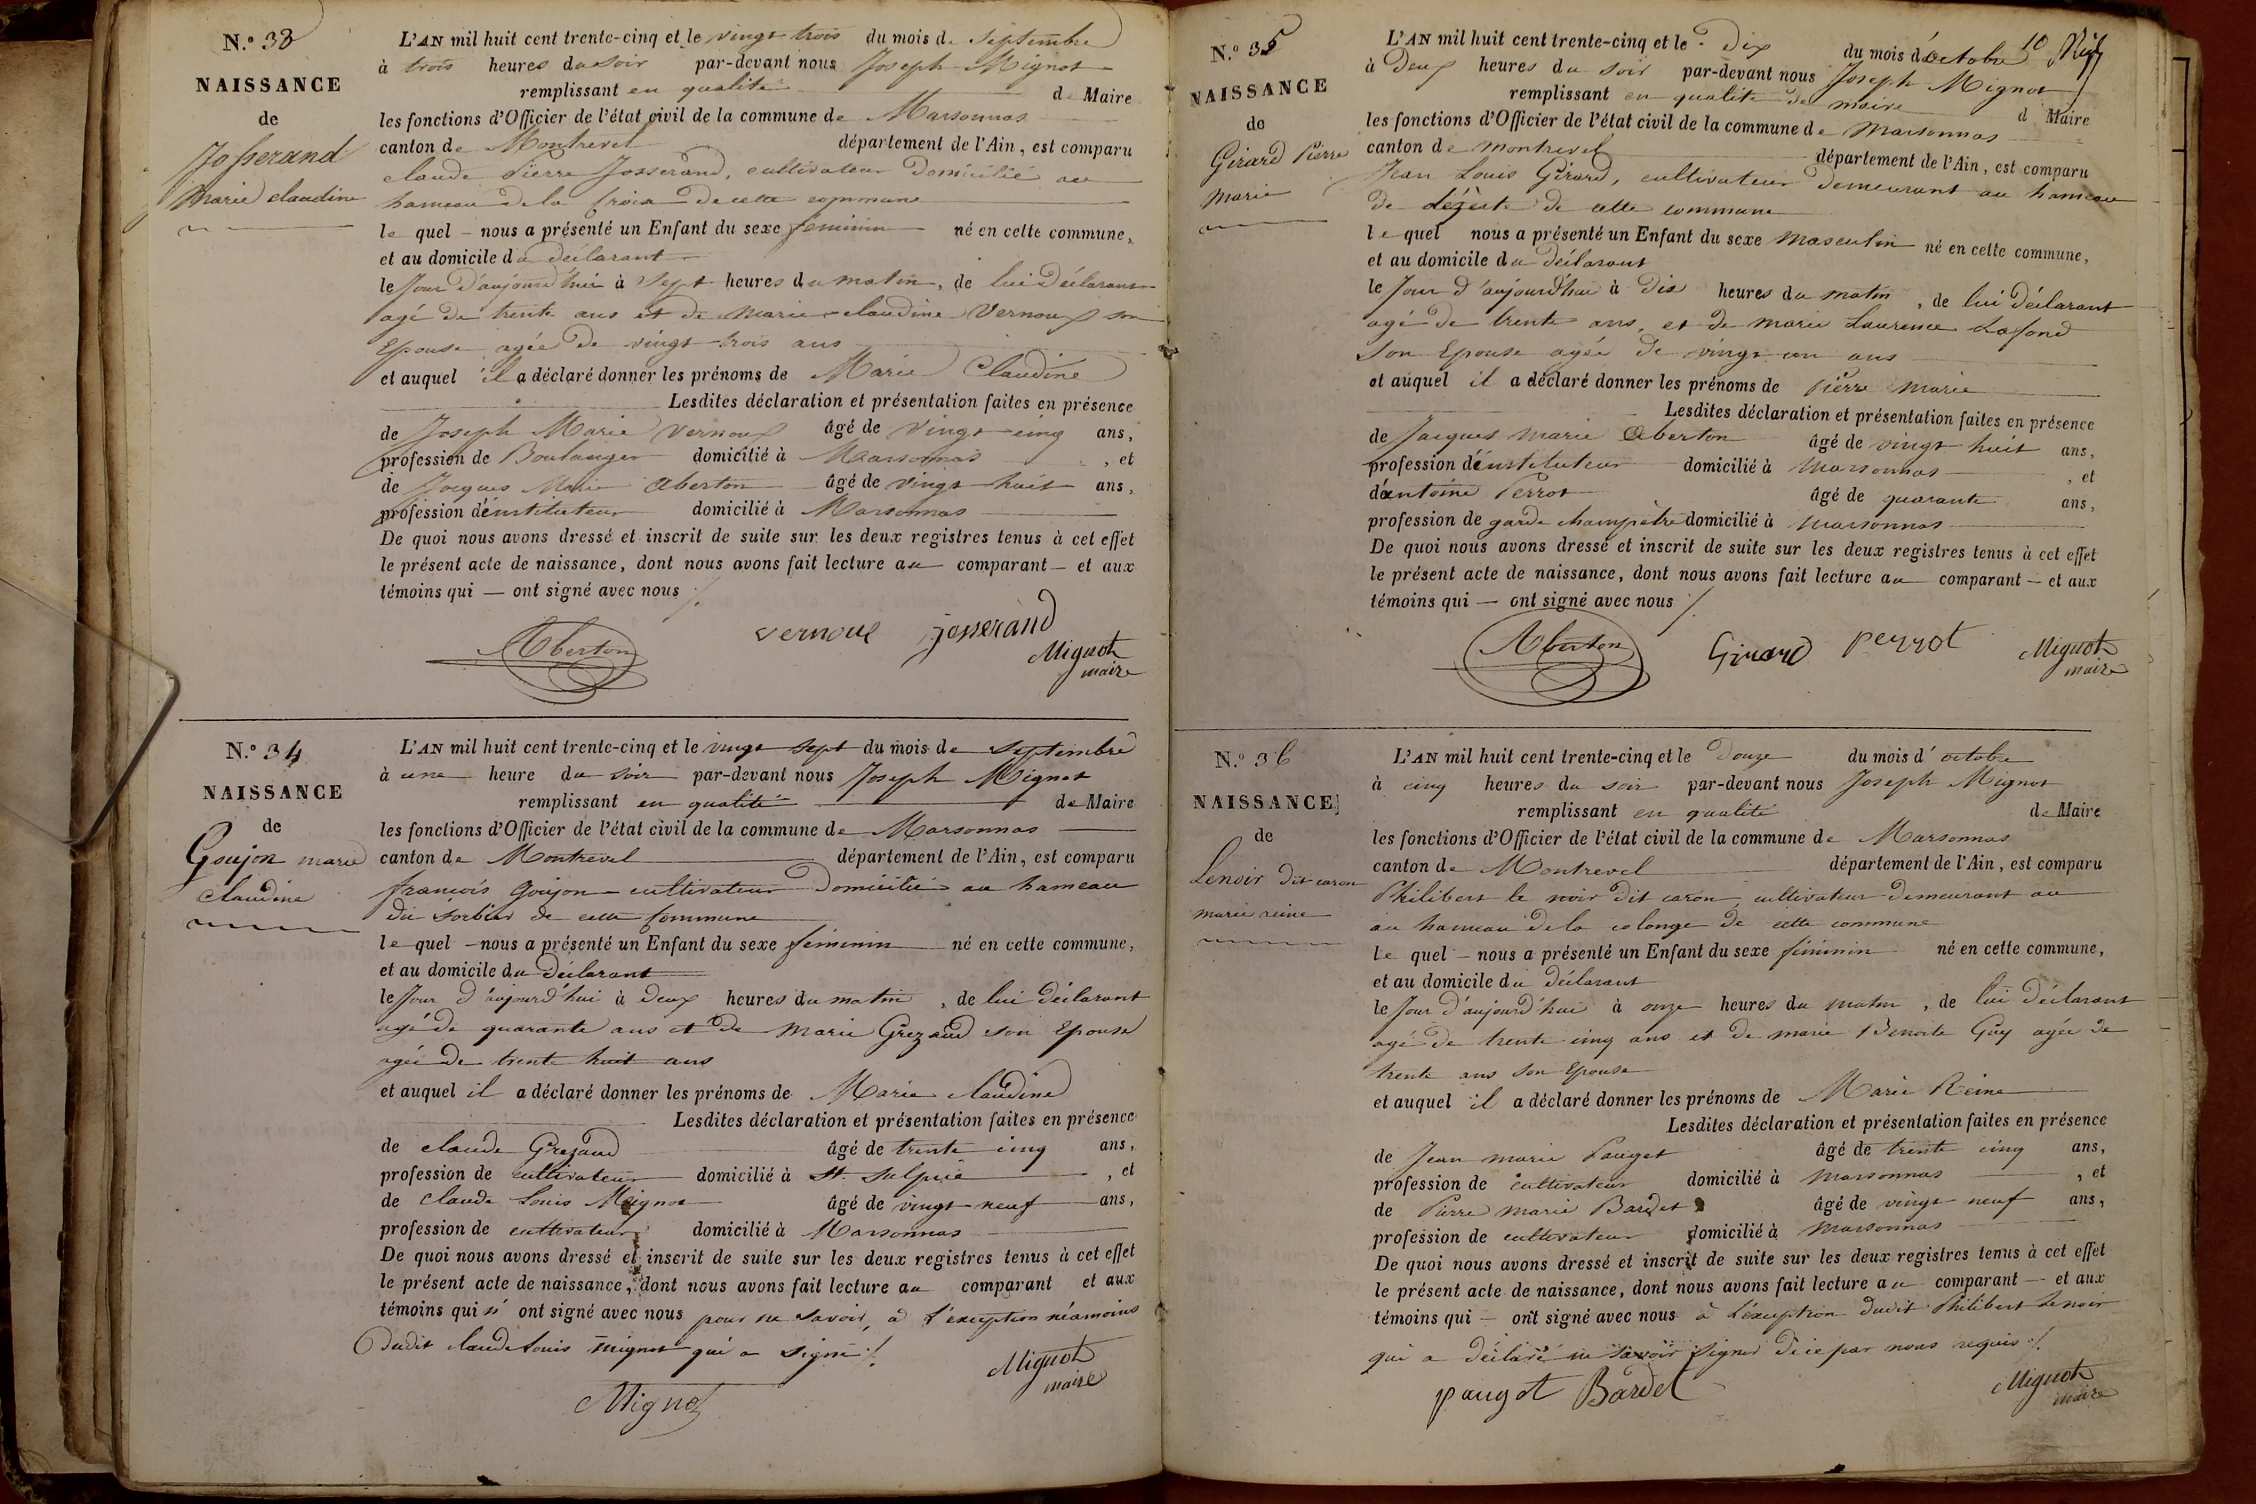 N.o 33
NAISSANCE
de
Josserand
Marie claudine
L'AN mil huit cent trente-cinq et le vingt trois du mois de Septembre
à trois heures du soir par-devant nous Joseph Mignot
remplissant en qualité de Maire
les fonctions d'Officier de l'état civil de la commune de Marsonnas
canton de Montrevel département de l'Ain, est comparu
claude Pierre Josserand, cultivateur Domicilié au
hameau de la Croix de cette commune
le quel nous a présenté un Enfant du sexe féminin né en cette commune,
et au domicile du déclarant
le Jour d'aujourd'hui à Sept heures du matin, de lui Déclarant
agé de trente ans et de Marie claudine Vernoux son
Epouse agée de vingt trois ans
et auquel il a déclaré donner les prénoms de Marie Claudine
Lesdites déclaration et présentation faites en présence
de Joseph Marie Vernoux âgé de vingt cinq ans,
profession de Boulanger domicilié à Marsonnas, et
de Jacques Marie Aberton âgé de vingt huit ans,
profession d'instituteur domicilié à Marsonnas
De quoi nous avons dressé et inscrit de suite sur les deux registres tenus à cet effet
le présent acte de naissance, dont nous avons fait lecture au comparant et aux
témoins qui ont signé avec nous
Aberton vernoux josserand Mignot
maire
N.o 34
NAISSANCE
de
Goujon marie
claudine
L'AN mil huit cent trente-cinq et le vingt sept du mois de Septembre
à une heure du soir par-devant nous Joseph Mignot
remplissant en qualité de Maire
les fonctions d'Officier de l'état civil de la commune de Marsonnas
canton de Montrevel département de l'Ain, est comparu
francois Goujon cultivateur Domicilié au hameau
du sorbier de cette Commune
le quel nous a présenté un Enfant du sexe féminin né en cette commune,
et au domicile du Déclarant
le Jour d'aujourd'hui à Deux heures du matin, de lui déclarant
agé de quarante ans et de Marie Grezaud son Epouse
agée de trente huit ans
et auquel il a déclaré donner les prénoms de Marie claudine
Lesdites déclaration et présentation faites en présence
de claude Grezaud âgé de trente cinq ans,
profession de cultivateur domicilié à St. Sulpice, et
de Claude Louis Mignot âgé de vingt neuf ans,
profession de cultivateur domicilié à Marsonnas
De quoi nous avons dressé et inscrit de suite sur les deux registres tenus à cet effet
le présent acte de naissance, dont nous avons fait lecture au comparant et aux
témoins qui n' ont signé avec nous pour ne savoir, à l'exception néamoins
Dudit claude Louis mignot qui a signé
Mignot
Mignot
maire
N.o 35
NAISSANCE
de
Girard Pierre
Marie
10
L'AN mil huit cent trente-cinq et le Dix du mois d'octobre
à Deux heures du soir par-devant nous Joseph Mignot
remplissant en qualité de maire d Maire
les fonctions d'Officier de l'état civil de la commune de Marsonnas
canton de Montrevel département de l'Ain, est comparu
Jean Louis Girard, cultivateur Demeurant au hameau
de dézerte de cette commune
le quel nous a présenté un Enfant du sexe masculin né en cette commune,
et au domicile du déclarant
le Jour d'aujourd'hui à Dix heures du matin, de lui déclarant
agé de trente ans, et de marie Laurence Lafond
Son Epouse agée de vingt un ans
et auquel il a déclaré donner les prénoms de Pierre Marie
Lesdites déclaration et présentation faites en présence
de Jacques Marie Aberton âgé de vingt huit ans,
profession d'instituteur domicilié à Marsonnas, et
d'antoine Perrot âgé de quarante ans,
profession de garde champètre domicilié à Marsonnas
De quoi nous avons dressé et inscrit de suite sur les deux registres tenus à cet effet
le présent acte de naissance, dont nous avons fait lecture au comparant et aux
témoins qui ont signé avec nous
Aberton Girard perrot Mignot
maire
N.o 36
NAISSANCE
de
Lenoir dit caron
marie reine
L'AN mil huit cent trente-cinq et le Douze du mois d'octobre
à cinq heures du soir par-devant nous Joseph Mignot
remplissant en qualité de Maire
les fonctions d'Officier de l'état civil de la commune de Marsonnas
canton de Montrevel département de l'Ain, est comparu
Philibert le noir dit caron, cultivateur demeurant au
au hameau de la colonge de cette commune
Le quel nous a présenté un Enfant du sexe féminin né en cette commune,
et au domicile du déclarant
le Jour d'aujourd'hui à onze heures du matin, de lui déclarant
agé de trente cinq ans et de marie Benoite Guy agée de
trente ans son Epouse
et auquel il a déclaré donner les prénoms de Marie Reine
Lesdites déclaration et présentation faites en présence
de Jean marie Pauget âgé de trente cinq ans,
profession de cultivateur domicilié à Marsonnas, et
de Pierre Marie Bardet âgé de vingt neuf ans,
profession de cultivateur domicilié à Marsonnas
De quoi nous avons dressé et inscrit de suite sur les deux registres tenus à cet effet
le présent acte de naissance, dont nous avons fait lecture au comparant et aux
témoins qui ont signé avec nous à l'éxception dudit Philibert Lenoir
qui a déclaré ne savoir signer de ce par nous requis
pauget Bardet Mignot
maire